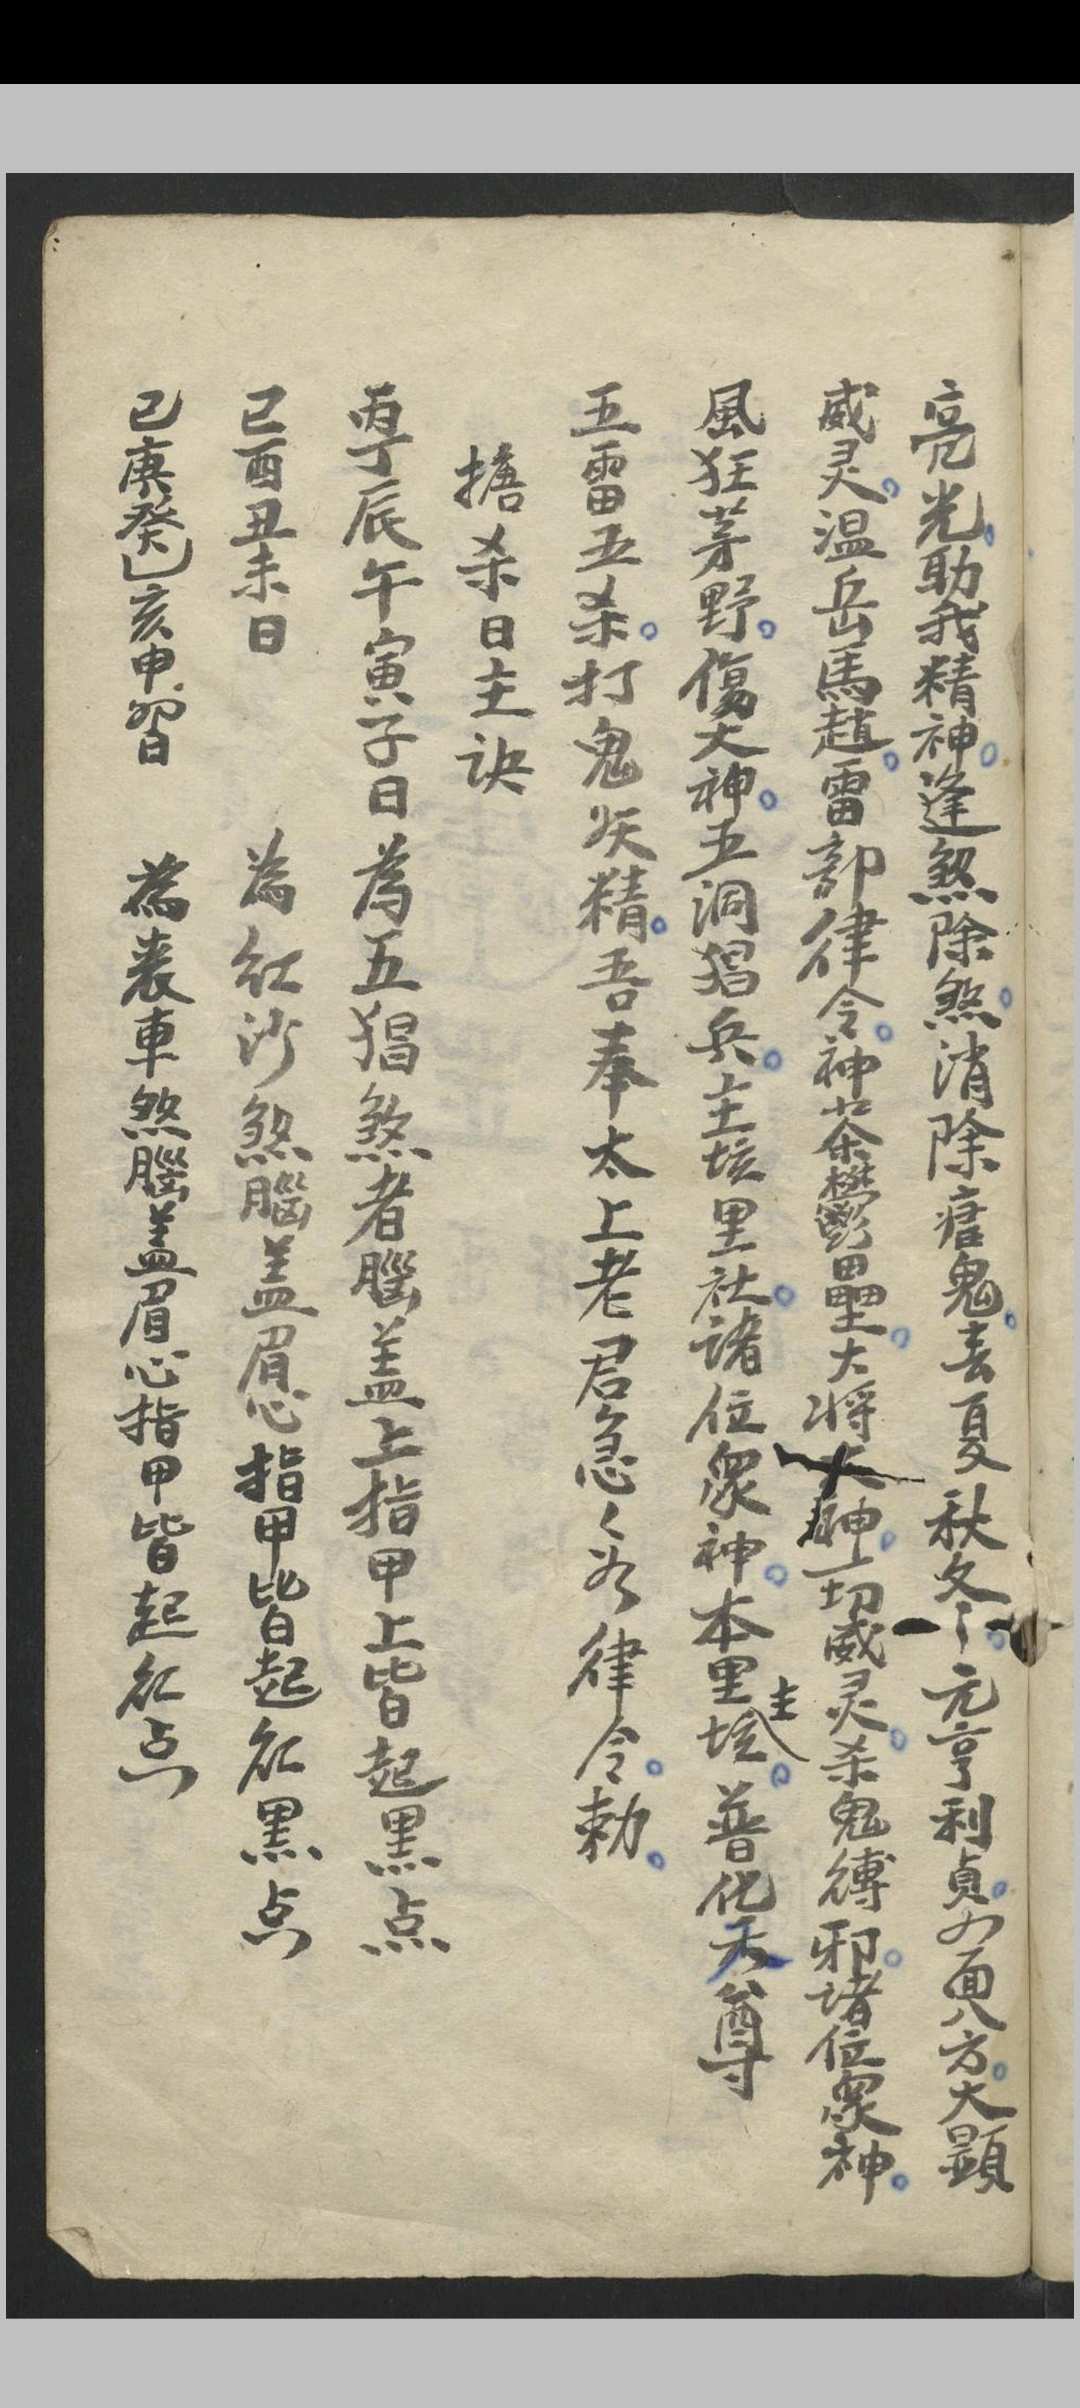 亮光助我精神逢煞除煞消除瘧鬼春夏秋冬元亨利貞四面八方大顯
威灵温岳馬趙雷部律令神荼鬱壘大将神一切威灵杀鬼縛邪諸位眾神
風狂茅野傷大神五洞猖兵主坛里社諸位眾神本里坛主普化天尊
五雷五杀打鬼妖精吾奉太上老君急々如律令勅
杀日主訣
丙丁辰午寅子日為五猖煞者腦盖上指甲上皆起黑点
己酉丑未日 為红沙煞腦盖眉心指甲皆起红黑点
己庚癸巳亥申卯日 為丧車煞腦盖眉心指甲皆起红点